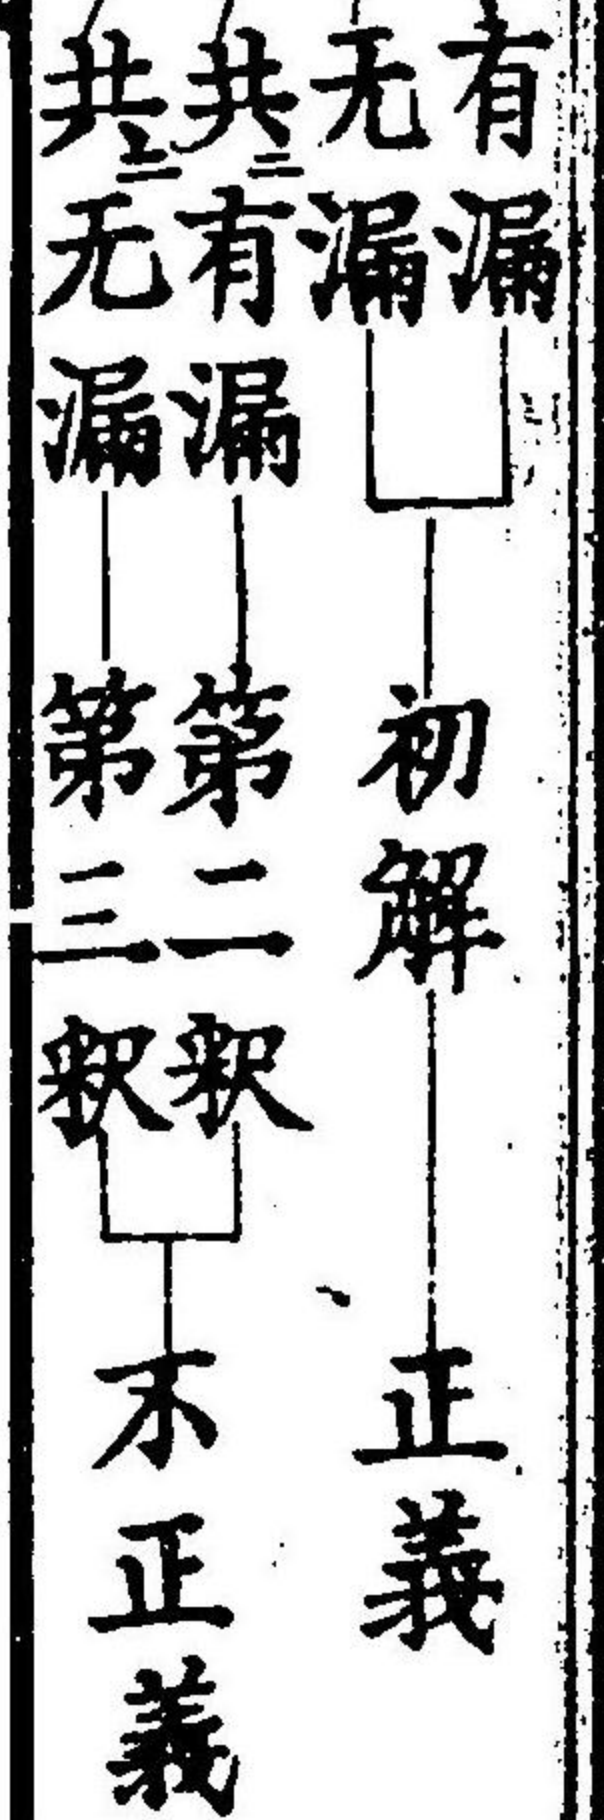 有漏
无漏
初解
正義
共二有漏
共二无漏
第二釈
第三釈
不正義